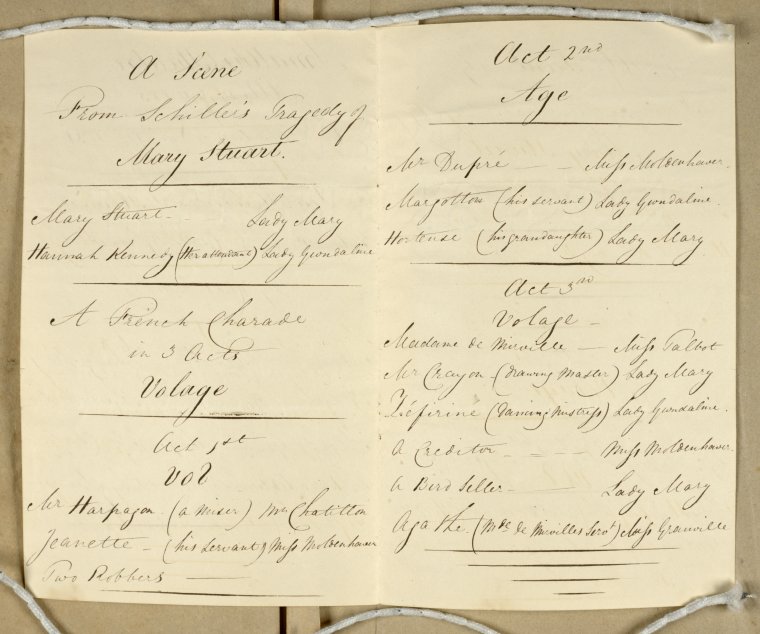 A Scene
From Schiller's Tragedy of
Mary Stuart.
Mary Stuart - Lady Mary
Hannah Kennedy (Her attendant) Lady Gwndaline
A French Charade
in 3 Acts
Volage
Act 1st
Vol
Mr Harpagon (a miser) Mr Chatillon
Jeanette - (his servant) Miss Moldenhawer
Two Robbers
Act 2nd
Age
Mr Dupré - - Miss Moldenhawer.
Margotton (his servant) Lady Gwndaline.
Hortense (his grandaughter) Lady Mary
Act 3rd
Volage -
Madame de Mirville - Miss Talbot
Mr Crayon (drawing Master) Lady Mary
Zéfirine (dancing Mistress) Lady Gwndaline.
A Creditor - - - Miss Moldenhawer.
A Bird Seller - Lady Mary
Agathe (Mde de Mirvilles Servt) Miss Granville